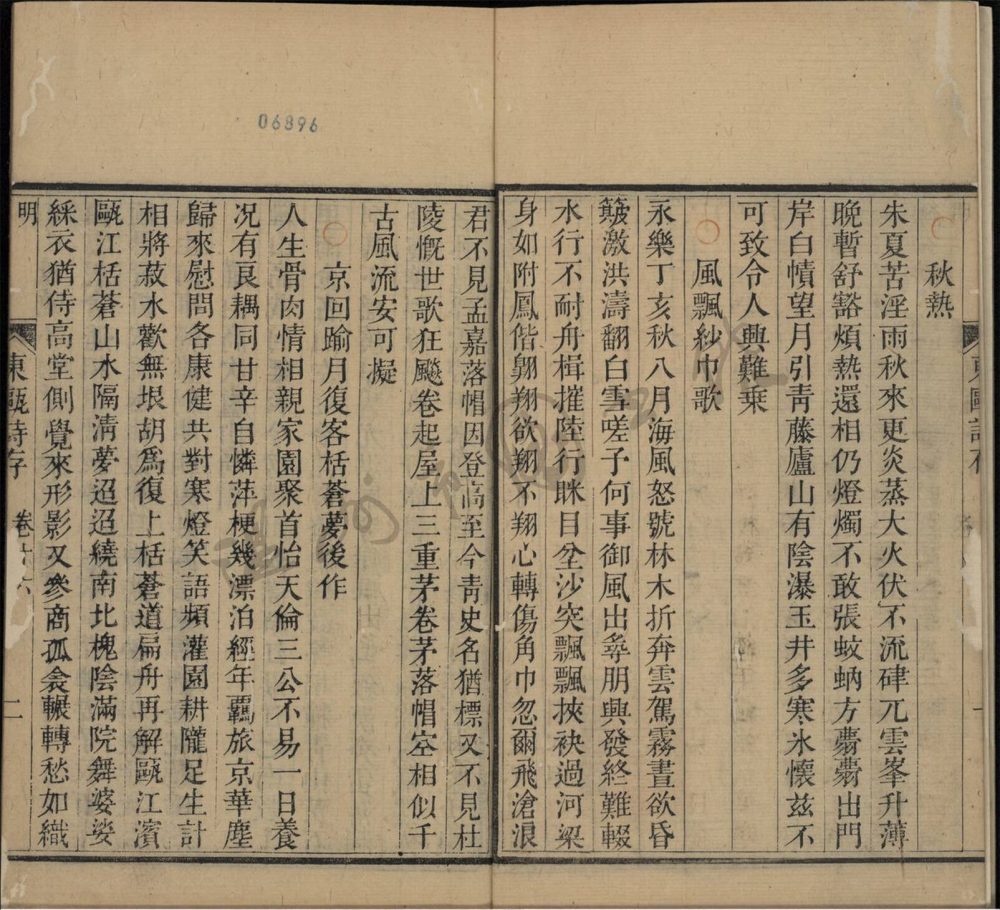 06896
秋熱
朱夏苦淫雨秋來更炎蒸大火伏不流硉兀雲峯升薄
晚暫舒豁煩熱還相仍燈燭不敢張蚊蚋方薨薨出門
岸白幘望月引青藤廬山有陰瀑玉井多寒氷懷兹不
可致令人興難乗
風飄紗巾歌
永樂丁亥秋八月海風怒號林木折奔雲駕霧晝欲昏
簸激洪濤翻白雪嗟子何事御風出尋朋興發終難輟
水行不耐舟楫摧陸行眯目坌沙突飄飄挾袂過河梁
身如附鳳偕翺翔欲翔不翔心轉傷角巾忽爾飛滄浪
君不見孟嘉落帽因登高至今青史名猶標又不見杜
陵慨世歌狂飈卷起屋上三重茅卷茅落帽空相似千
古風流安可擬
京回踰月復客栝蒼夢後作
人生骨肉情相親家園聚首怡天倫三公不易一日養
况有良耦同甘辛自憐萍梗幾漂泊經年羈旅京華塵
歸來慰問各康健共對寒燈笑語頻灌園耕隴足生計
相將菽水歡無垠胡爲復上栝蒼道扁舟再解甌江濱
甌江栝蒼山水隔淸夢迢迢繞南北槐陰滿院舞婆娑
綵衣猶侍高堂側覺來形影又參商孤衾輾轉愁如織
明 東甌詩存 卷十六 二